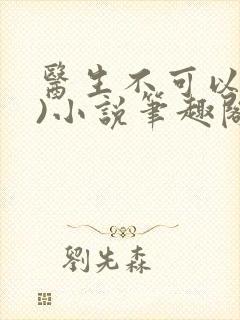 醫生不可以
)小說筆趣閣
劉先森